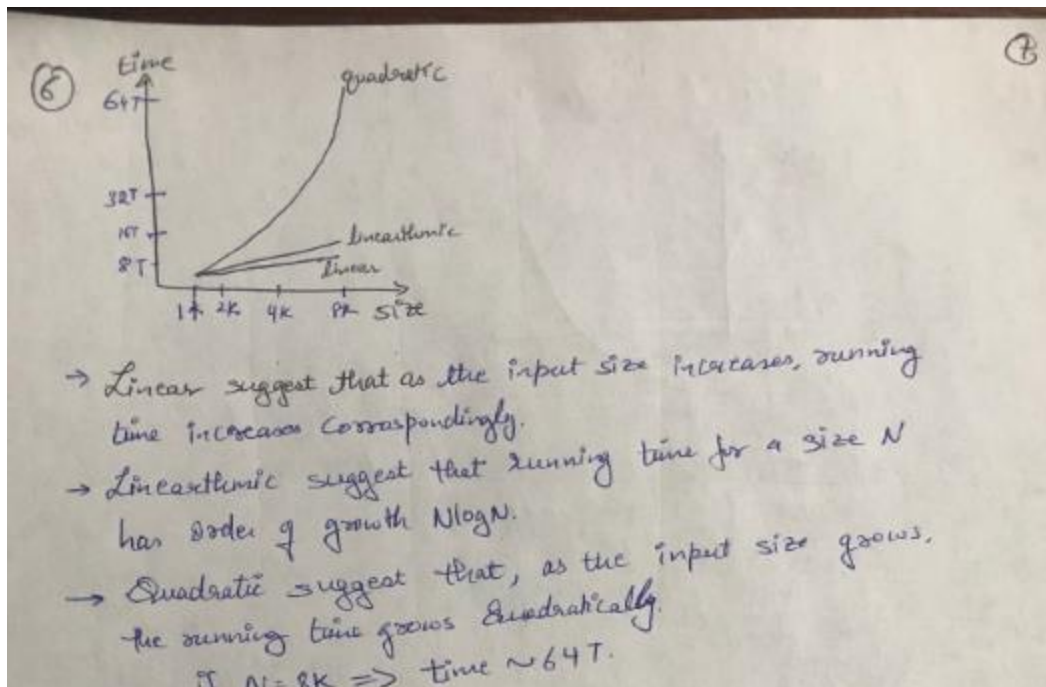 6
7
time
quadratic
64T
32T
16T
linearthmic
8T
linear
1K 2K 4K 8K size
→ Linear suggest that as the input size increases, running
time increases correspondingly.
→ Linearthmic suggest that running time for a size N
has order of growth NlogN.
→ Quadratic suggest that, as the input size grows,
the running time grows Quadratically.
if N=8K => time ~64T.